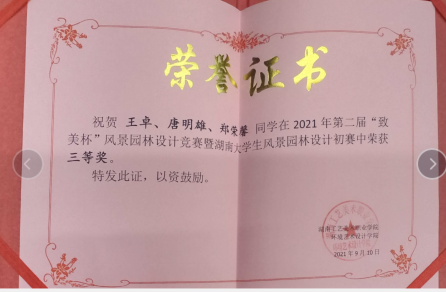 荣誉证书
祝贺 王卓、唐明雄、郑荣馨 同学在 2021 年第二届“致
美杯”风景园林设计竞赛暨湖南大学生风景园林设计初赛中荣获
三等奖。
特发此证，以资鼓励。
湖南工艺美术职业学院
环境艺术设计学院
2021 年 9 月 10 日